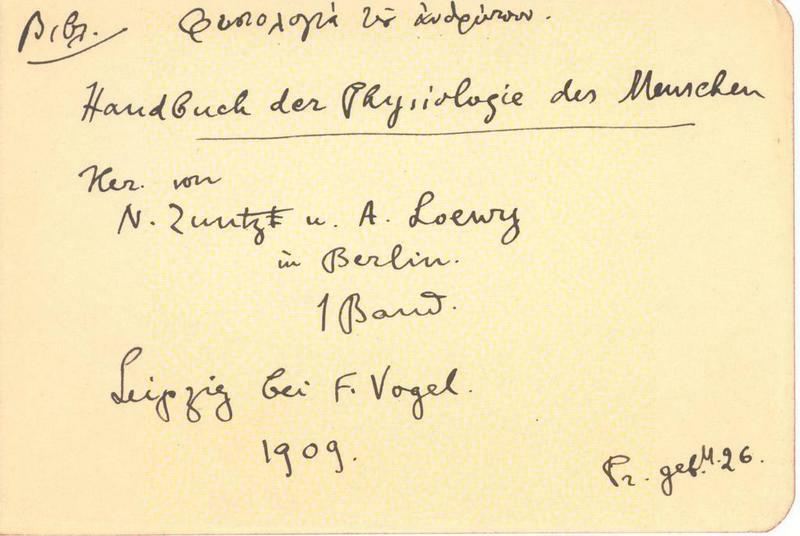 Βιβλ. Φυσιολογία τοῦ ἀνθρώπου.
Handbuch der Physiologie des Menschen
Her. von
N. Zuntz u. A. Loewy
in Berlin.
1 Band.
Leipzig bei F. Vogel.
1909.
Pr. geb. M. 26.